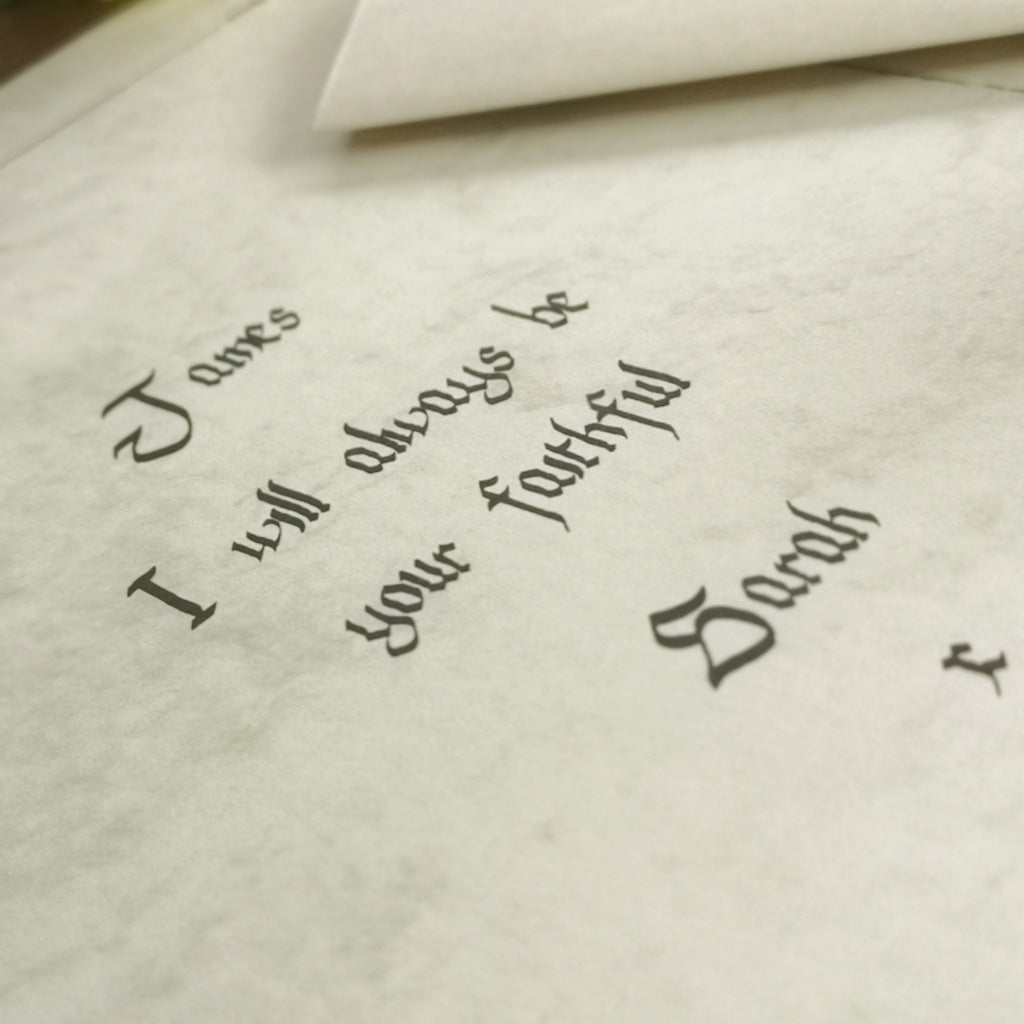 James
I will always be
your faithful
Sarah
r